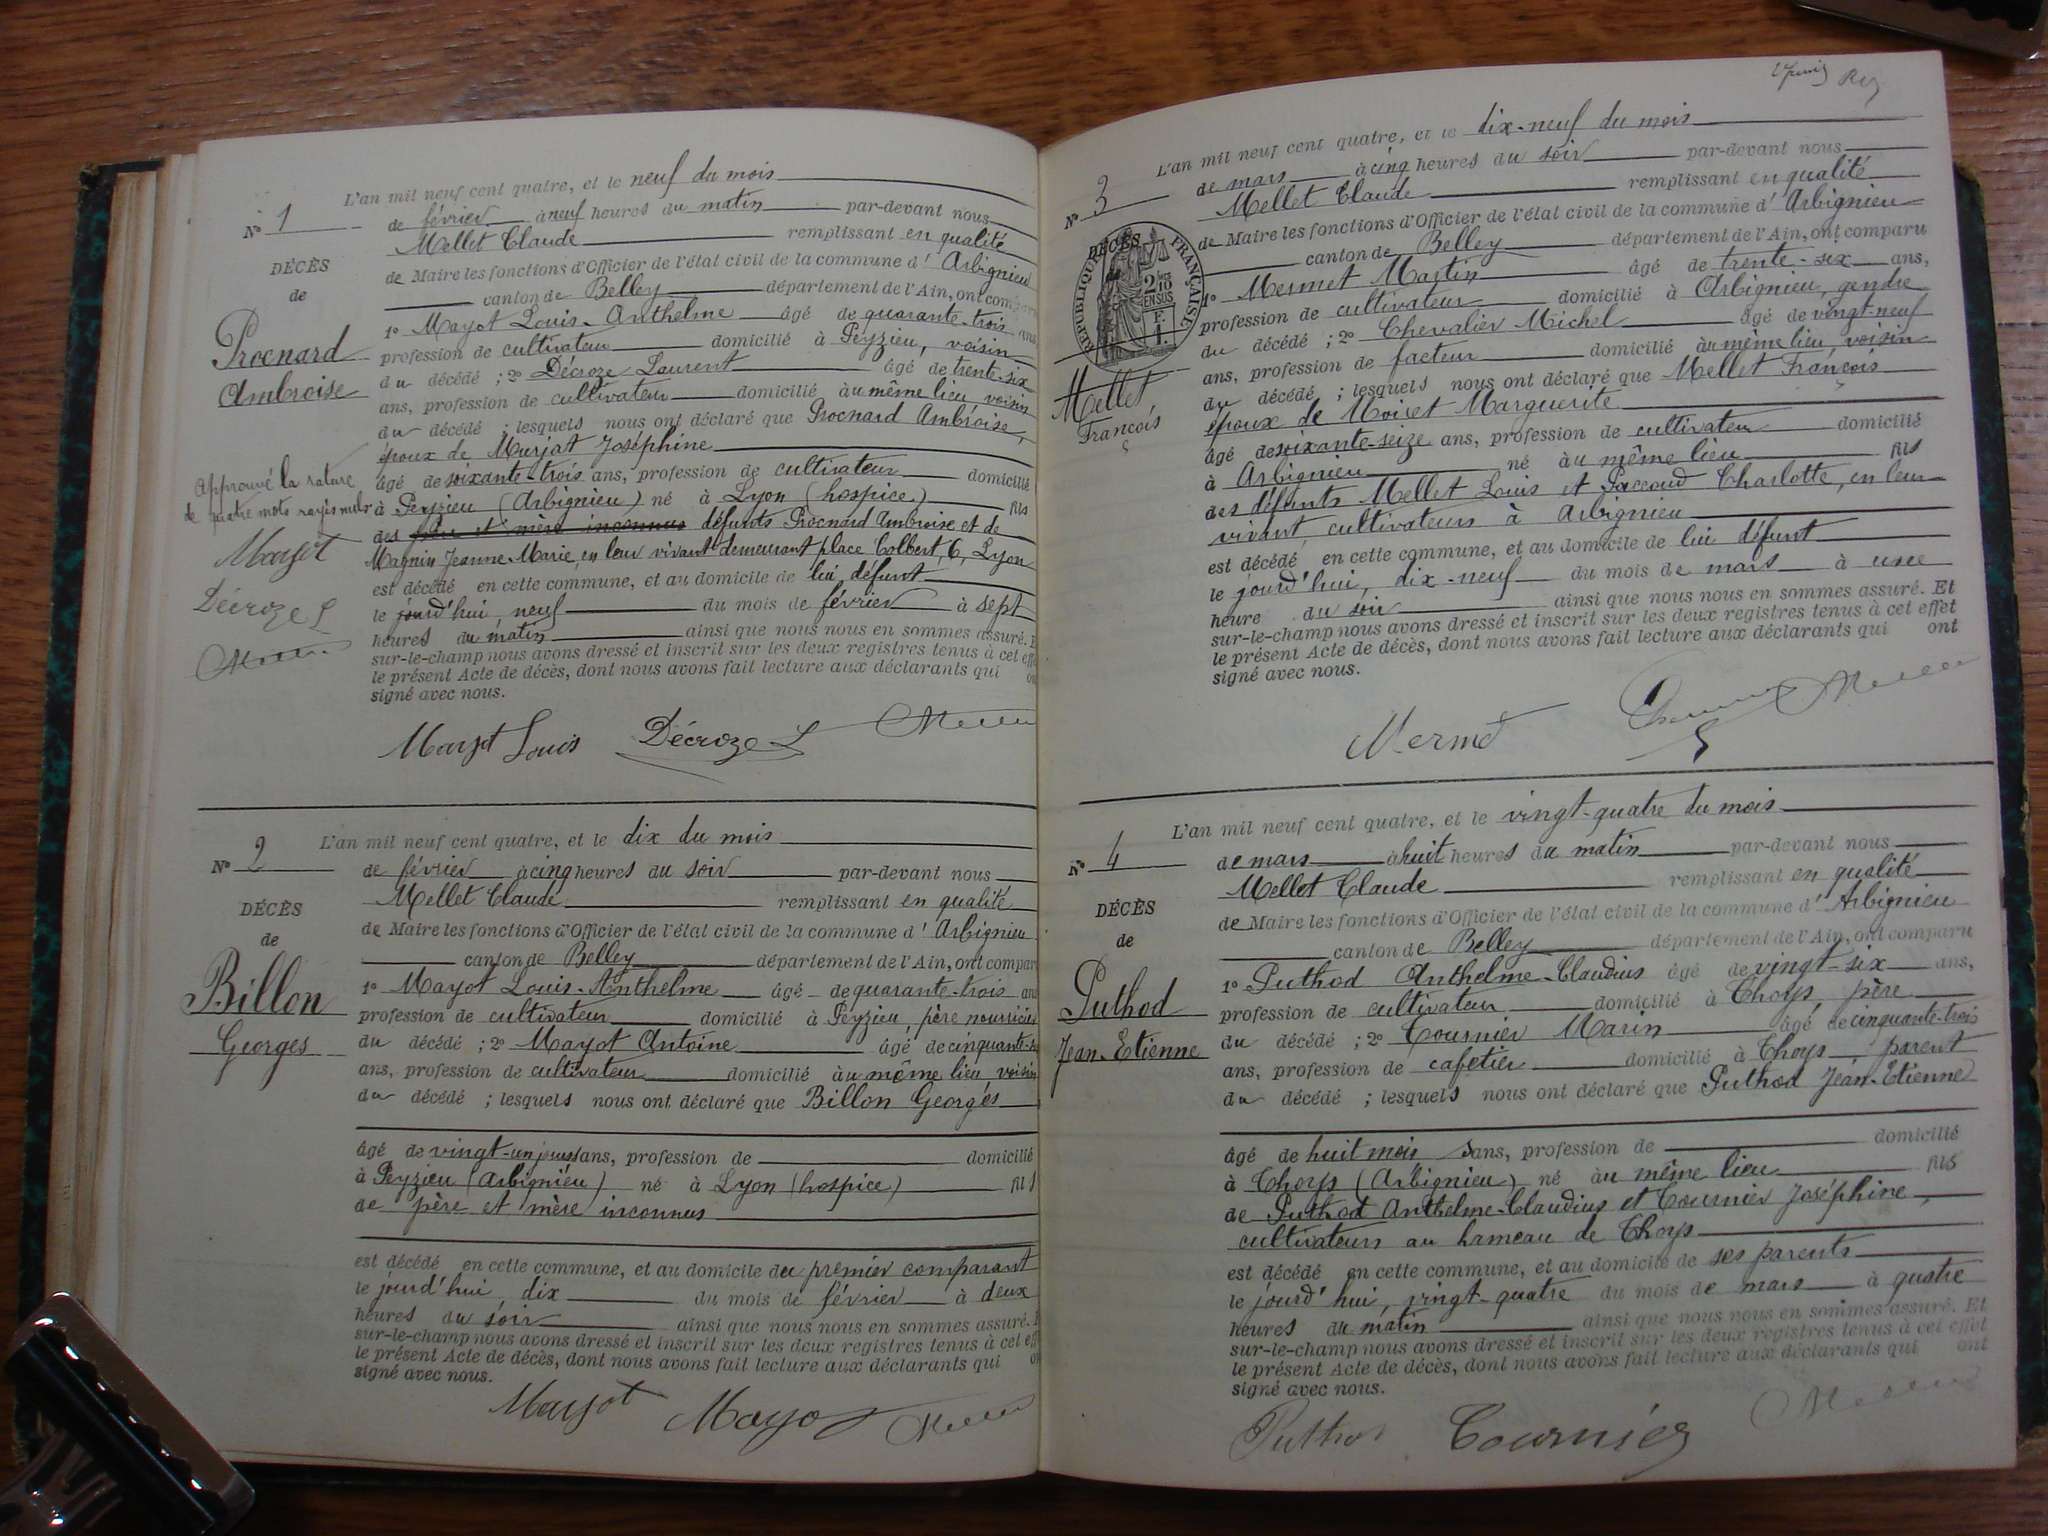 L'an mil neuf cent quatre, et le neuf du mois
No 1
de février à neuf heures du matin par-devant nous
Mellet Claude remplissant en qualité
de Maire les fonctions d'Officier de l'état civil de la commune d' Arbignieu
canton de Belley département de l'Ain, ont comparu
DÉCÈS
de
Procnard
Ambroise
1o Mayot Louis-Anthelme âgé de quarante-trois ans
profession de cultivateur domicilié à Peyzieu, voisin
du décédé ; 2o Décroze Laurent âgé de trente-six
ans, profession de cultivateur domicilié au même lieu, voisin
du décédé ; lesquels nous ont déclaré que Procnard Ambroise,
époux de Murjat Joséphine
âgé de soixante-trois ans, profession de cultivateur domicilié
à Peyzieu (Arbignieu) né à Lyon (hospice) fils
des père et mère inconnus défunts Procnard Ambroise et de
Magnin Jeanne-Marie, en leur vivant demeurant place Colbert, 6, Lyon
est décédé en cette commune, et au domicile de lui défunt
le jourd'hui, neuf du mois de février à sept
heures du matin ainsi que nous nous en sommes assuré. E
sur-le-champ nous avons dressé et inscrit sur les deux registres tenus à cet eff
le présent Acte de décès, dont nous avons fait lecture aux déclarants qui on
signé avec nous.
Approuvé la rature
de quatre mots rayés nuls
Mayot
Décroze L
Mayot Louis Décroze L
L'an mil neuf cent quatre, et le dix du mois
No 2
de février à cinq heures du soir par-devant nous
Mellet Claude remplissant en qualité
de Maire les fonctions d'Officier de l'état civil de la commune d' Arbignieu
canton de Belley département de l'Ain, ont comparu
DÉCÈS
de
Billon
Georges
1o Mayot Louis-Anthelme âgé de quarante-trois ans
profession de cultivateur domicilié à Peyzieu, père nourricier
du décédé ; 2o Mayot Antoine âgé de cinquante-
ans, profession de cultivateur domicilié au même lieu, voisin
du décédé ; lesquels nous ont déclaré que Billon Georges
âgé de vingt-un jours ans, profession de domicilié
à Peyzieu (Arbignieu) né à Lyon (hospice) fils
de père et mère inconnus
est décédé en cette commune, et au domicile du premier comparant
le jourd'hui, dix du mois de février à deux
heures du soir ainsi que nous nous en sommes assuré. E
sur-le-champ nous avons dressé et inscrit sur les deux registres tenus à cet eff
le présent Acte de décès, dont nous avons fait lecture aux déclarants qui on
signé avec nous.
Mayot Mayot
L'an mil neuf cent quatre, et le dix-neuf du mois
No 3
de mars à cinq heures du soir par-devant nous
Mellet Claude remplissant en qualité
de Maire les fonctions d'Officier de l'état civil de la commune d' Arbignieu
canton de Belley département de l'Ain, ont comparu
DÉCÈS
RÉPUBLIQUE FRANÇAISE
2/10
EN SUS
F.
1.
Mellet
François
1o Mermet Martin âgé de trente-six ans,
profession de cultivateur domicilié à Arbignieu, gendre
du décédé ; 2o Chevalier Michel âgé de vingt-neuf
ans, profession de facteur domicilié au même lieu, voisin
du décédé ; lesquels nous ont déclaré que Mellet François
époux de Moiret Marguerite
âgé de soixante-seize ans, profession de cultivateur domicilié
à Arbignieu né au même lieu fils
des défunts Mellet Louis et Paccoud Charlotte, en leur
vivant, cultivateurs à Arbignieu
est décédé en cette commune, et au domicile de lui défunt
le jourd'hui, dix-neuf du mois de mars à une
heure du soir ainsi que nous nous en sommes assuré. Et
sur-le-champ nous avons dressé et inscrit sur les deux registres tenus à cet effet
le présent Acte de décès, dont nous avons fait lecture aux déclarants qui ont
signé avec nous.
Mermet
L'an mil neuf cent quatre, et le vingt-quatre du mois
No 4
de mars à huit heures du matin par-devant nous
Mellet Claude remplissant en qualité
de Maire les fonctions d'Officier de l'état civil de la commune d' Arbignieu
canton de Belley département de l'Ain, ont comparu
DÉCÈS
de
Puthod
Jean-Etienne
1o Puthod Anthelme-Claudius âgé de vingt-six ans,
profession de cultivateur domicilié à Thoys, père
du décédé ; 2o Tournier Marin âgé de cinquante-trois
ans, profession de cafetier domicilié à Thoys parent
du décédé ; lesquels nous ont déclaré que Puthod Jean-Etienne
âgé de huit mois sans, profession de domicilié
à Thoys (Arbignieu) né au même lieu fils
de Puthod Anthelme-Claudius et Tournier Joséphine,
cultivateurs au hameau de Thoys
est décédé en cette commune, et au domicile de ses parents
le jourd'hui, vingt-quatre du mois de mars à quatre
heures du matin ainsi que nous nous en sommes assuré. Et
sur-le-champ nous avons dressé et inscrit sur les deux registres tenus à cet effet
le présent Acte de décès, dont nous avons fait lecture aux déclarants qui ont
signé avec nous.
Puthod Tournier